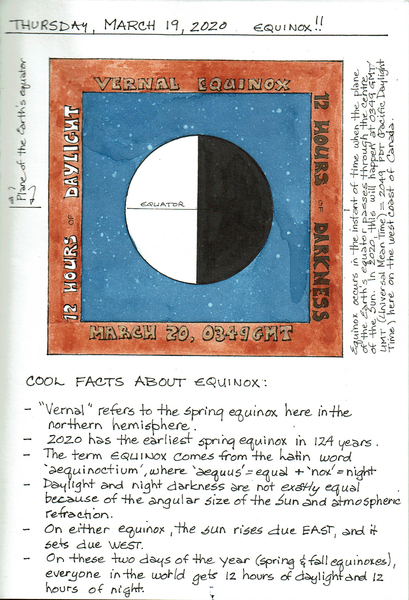 THURSDAY, MARCH 19, 2020 EQUINOX!!
VERNAL EQUINOX
12 HOURS OF DAYLIGHT
12 HOURS OF DARKNESS
EQUATOR
MARCH 20, 0349 GMT
Plane of the Earth's equator
Equinox occurs in the instant of time when the plane
of the Earth's equator passes through the centre
of the Sun. 2020, this will happen at 0349 GMT
UMT (Universal Mean Time) = 2049 PDT (Pacific Daylight
Time) here on the west coast of Canada.
COOL FACTS ABOUT EQUINOX:
- "Vernal" refers to the spring equinox here in the
northern hemisphere.
- 2020 has the earliest spring equinox in 124 years.
- The term EQUINOX comes from the Latin word
'aequinoctium', where 'aequus' = equal + 'nox' = night
- Daylight and night darkness are not exactly equal
because of the angular size of the sun and atmospheric
refraction.
- On either equinox, the sun rises due EAST, and it
sets due WEST.
- On these two days of the year (spring & fall equinoxes),
everyone in the world gets 12 hours of daylight and 12
hours of night.